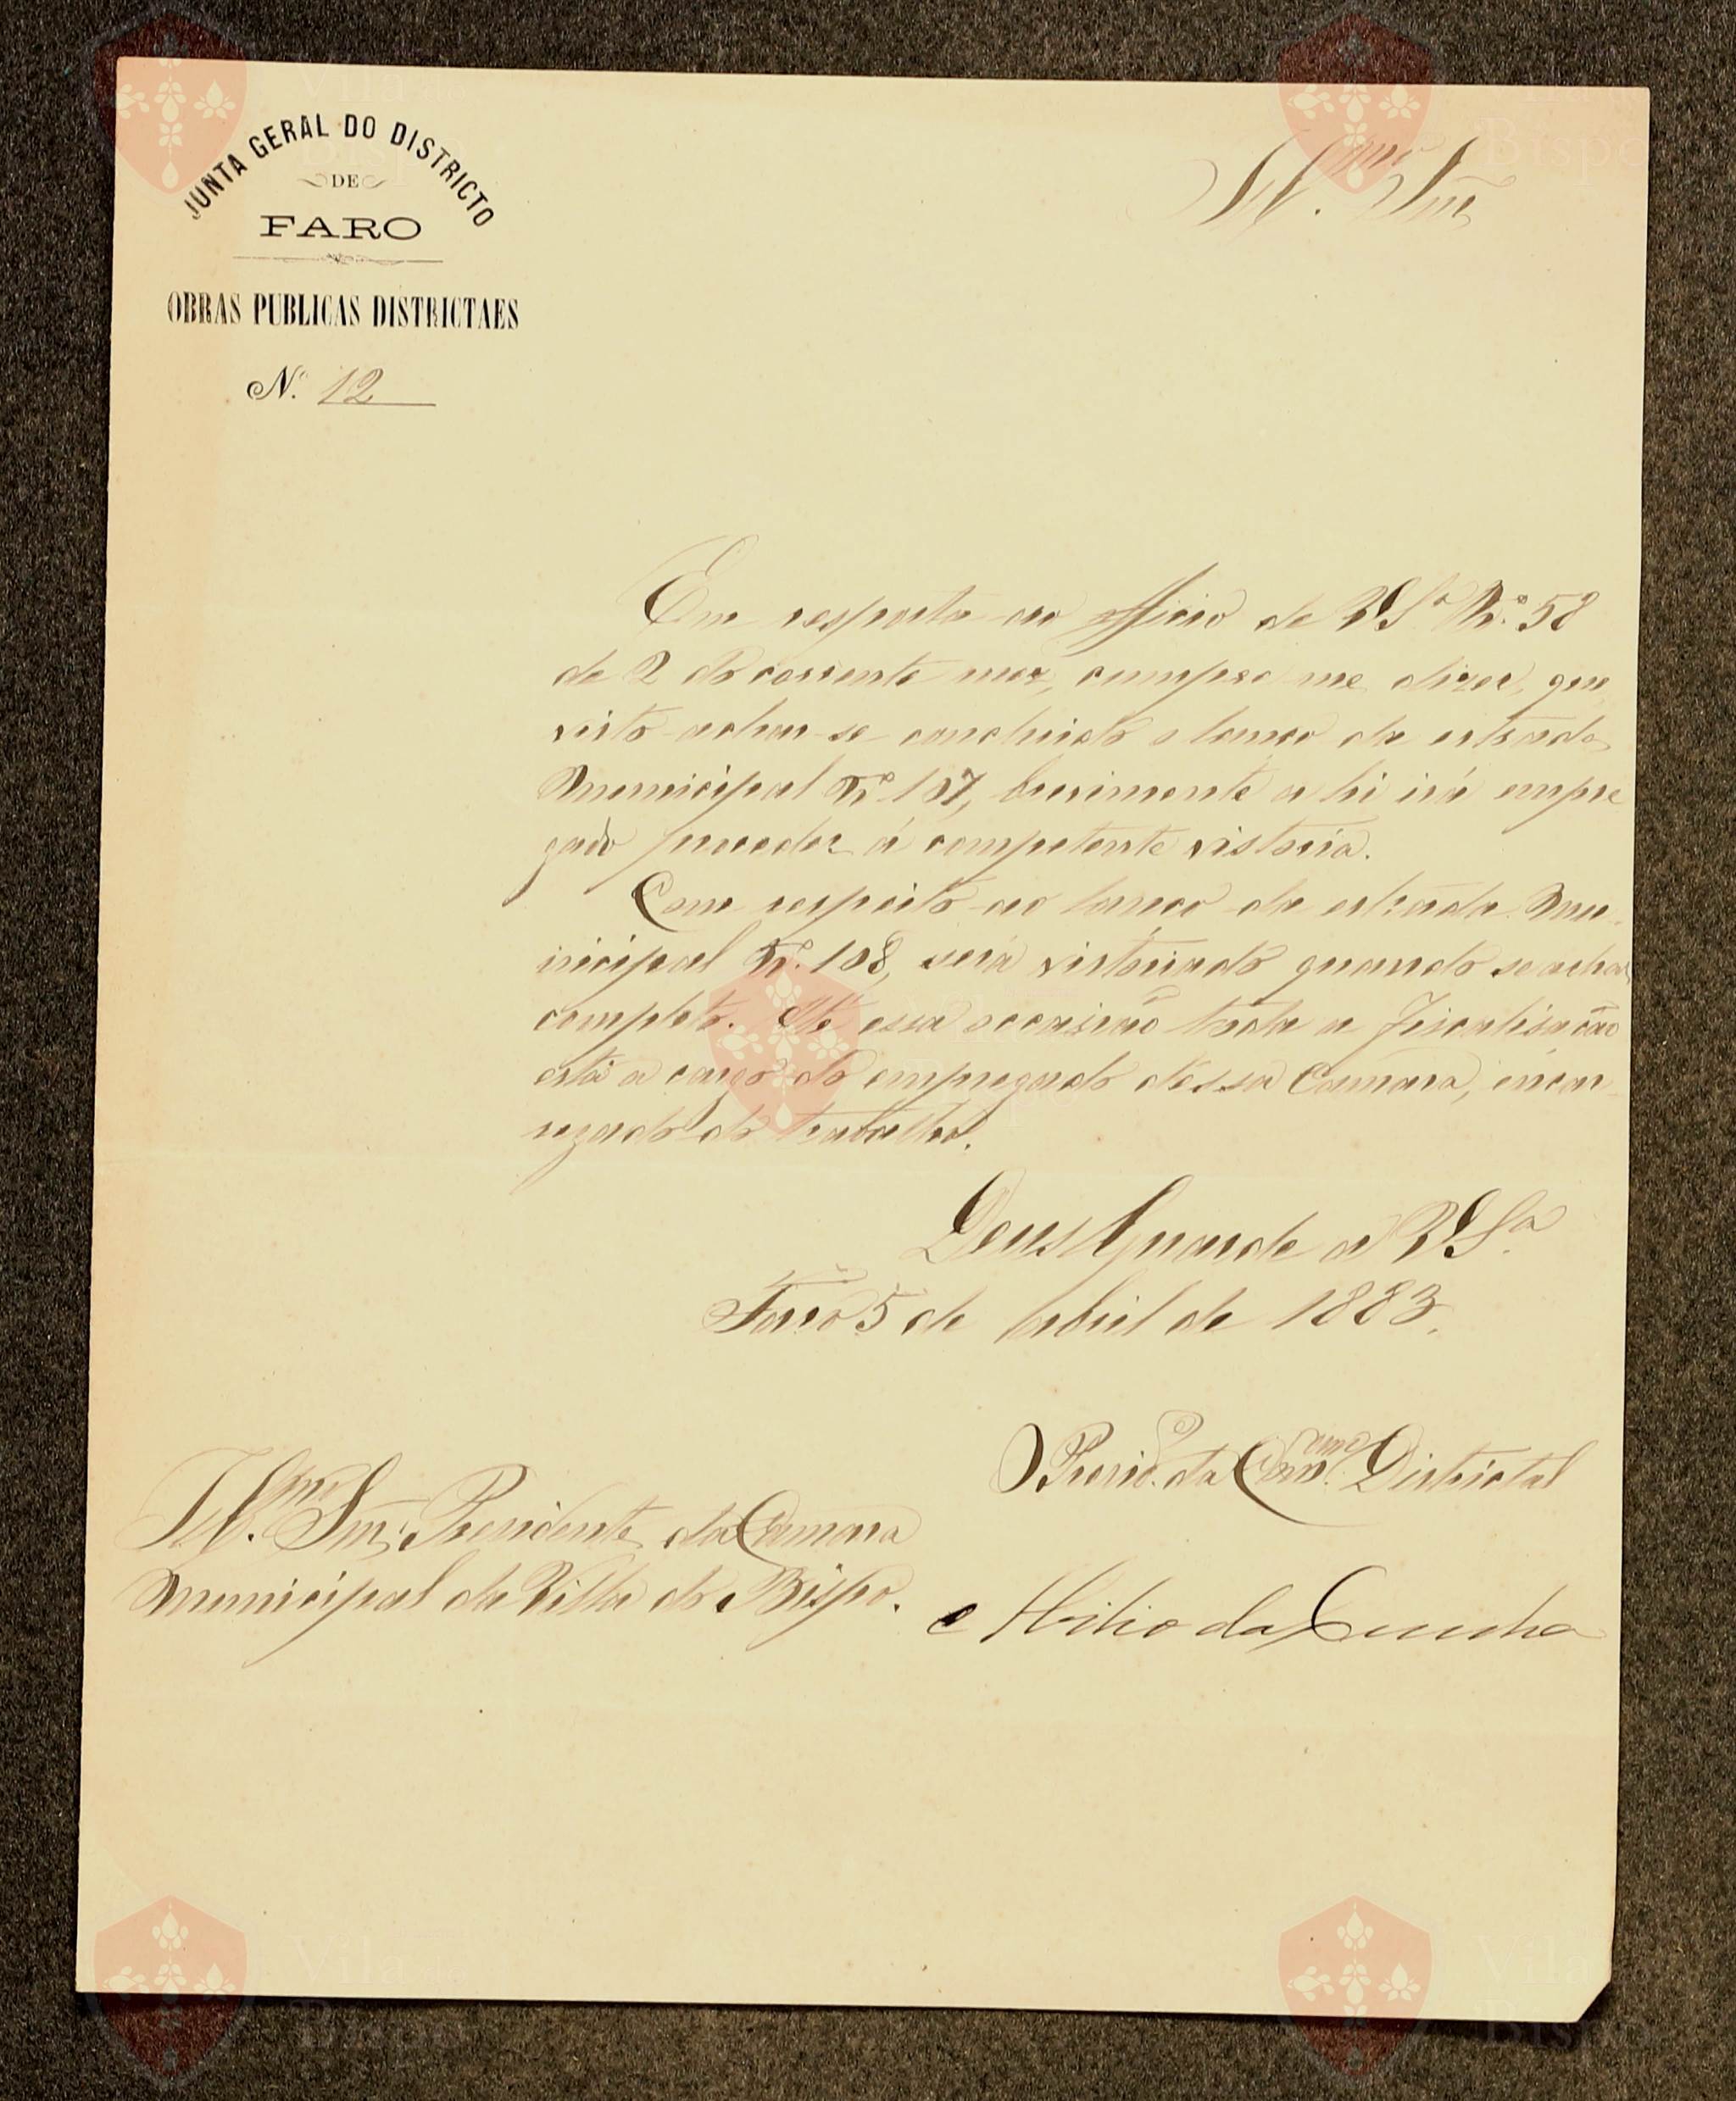 JUNTA GERAL DO DISTRICTO
DE
FARO
OBRAS PUBLICAS DISTRICTAES
N.º 12
Ill.mo Snr.
Em resposta ao officio de V.Sª N.º 58
de 2 do corrente mez, cumpre me dizer, que
visto achar-se concluido o lanço da estrada
Municipal N.º 107, brevimente ahi irá empre
gado proceder á competente vistoria.
Com respeito ao lanço da estrada Mu-
nicipal N.º 108, será vistoriado quando se achar
completo. Até essa occasião toda a fiscalisação
está a cargo do empregado dessa Camara, encar-
regado do trabalho.
Deus Guarde a V.Sª
Faro 5 de Abril de 1883.
O Presid.e da Com.am Districtal
Ill.mo Snr. Presidente da Camara
Municipal da Villa do Bispo.
Abilio da Cunha
Vila do
Bispo